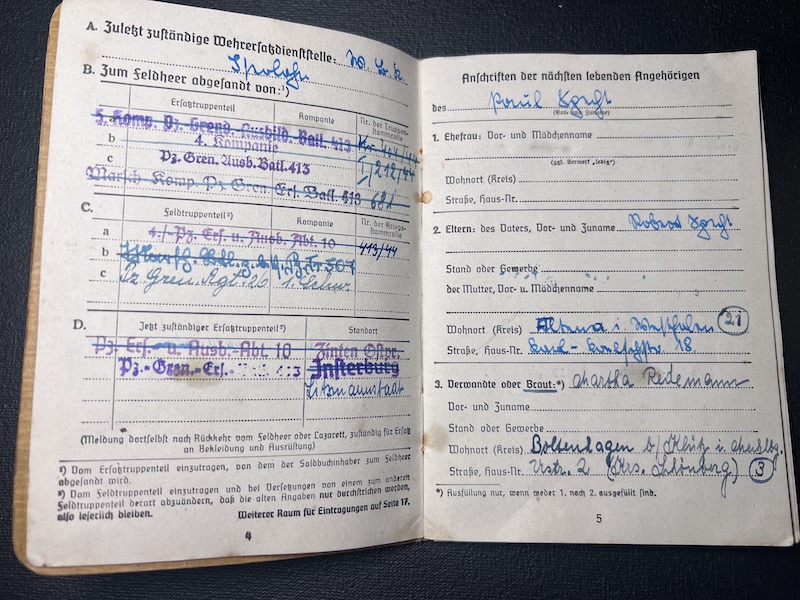 A. Zuletzt zuständige Wehrersatzdienststelle: W. B. K.
B. Zum Feldheer abgesandt von:¹)
Ersatztruppenteil Kompanie Nr. der Truppenstammrolle
5. Komp. Pz. Grend. Ausbild. Batl. 413
b 4. Kompanie
c Pz. Gren. Ausb. Batl. 413 212/44
Marsch Komp. Pz Gren Ers Batl. 413 681
C.
Feldtruppenteil²) Kompanie Nr. der Kriegsstammrolle
a 4./Pz. Ers. u. Ausb. Abt. 10 413/44
b
c Pz. Gren. Rgt. 26 1.
D.
Jetzt zuständiger Ersatztruppenteil²) Standort
Pz. Ers.- u. Ausb.-Abt. 10 Zinten Ostpr.
Pz.-Gren.-Ers.- 413 Insterburg
Litzmannstadt
(Meldung dortselbst nach Rückkehr vom Feldheer oder Lazarett, zuständig für Ersatz
an Bekleidung und Ausrüstung)
¹) Vom Ersatztruppenteil einzutragen, von dem der Soldbuchinhaber zum Feldheer
abgesandt wird.
²) Vom Feldtruppenteil einzutragen und bei Versetzungen von einem zum anderen
Feldtruppenteil derart abzuändern, daß die alten Angaben nur durchstrichen werden,
also leserlich bleiben. Weiterer Raum für Eintragungen auf Seite 17.
4
Anschriften der nächsten lebenden Angehörigen
des Paul
(Vor- und Zuname)
1. Ehefrau: Vor- und Mädchenname
(ggf. Vermerk „ledig")
Wohnort (Kreis)
Straße, Haus-Nr.
2. Eltern: des Vaters, Vor- und Zuname Robert
Stand oder Gewerbe
der Mutter, Vor- u. Mädchenname
Wohnort (Kreis) Altena i. Westfalen 21
Straße, Haus-Nr. 18
3. Verwandte oder Braut:*) Martha Redemann
Vor- und Zuname
Stand oder Gewerbe
Wohnort (Kreis) Boltenhagen b/ Klütz i.
Straße, Haus-Nr. 2 (Krs. Schönberg) 3
*) Ausfüllung nur, wenn weder 1. noch 2. ausgefüllt sind.
5